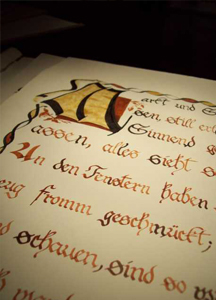 Markt und S
sen still erl
Sinnend g
assen, alles sieht s
An den Fenstern haben
zeug fromm geschmückt,
nd schauen, sind so w